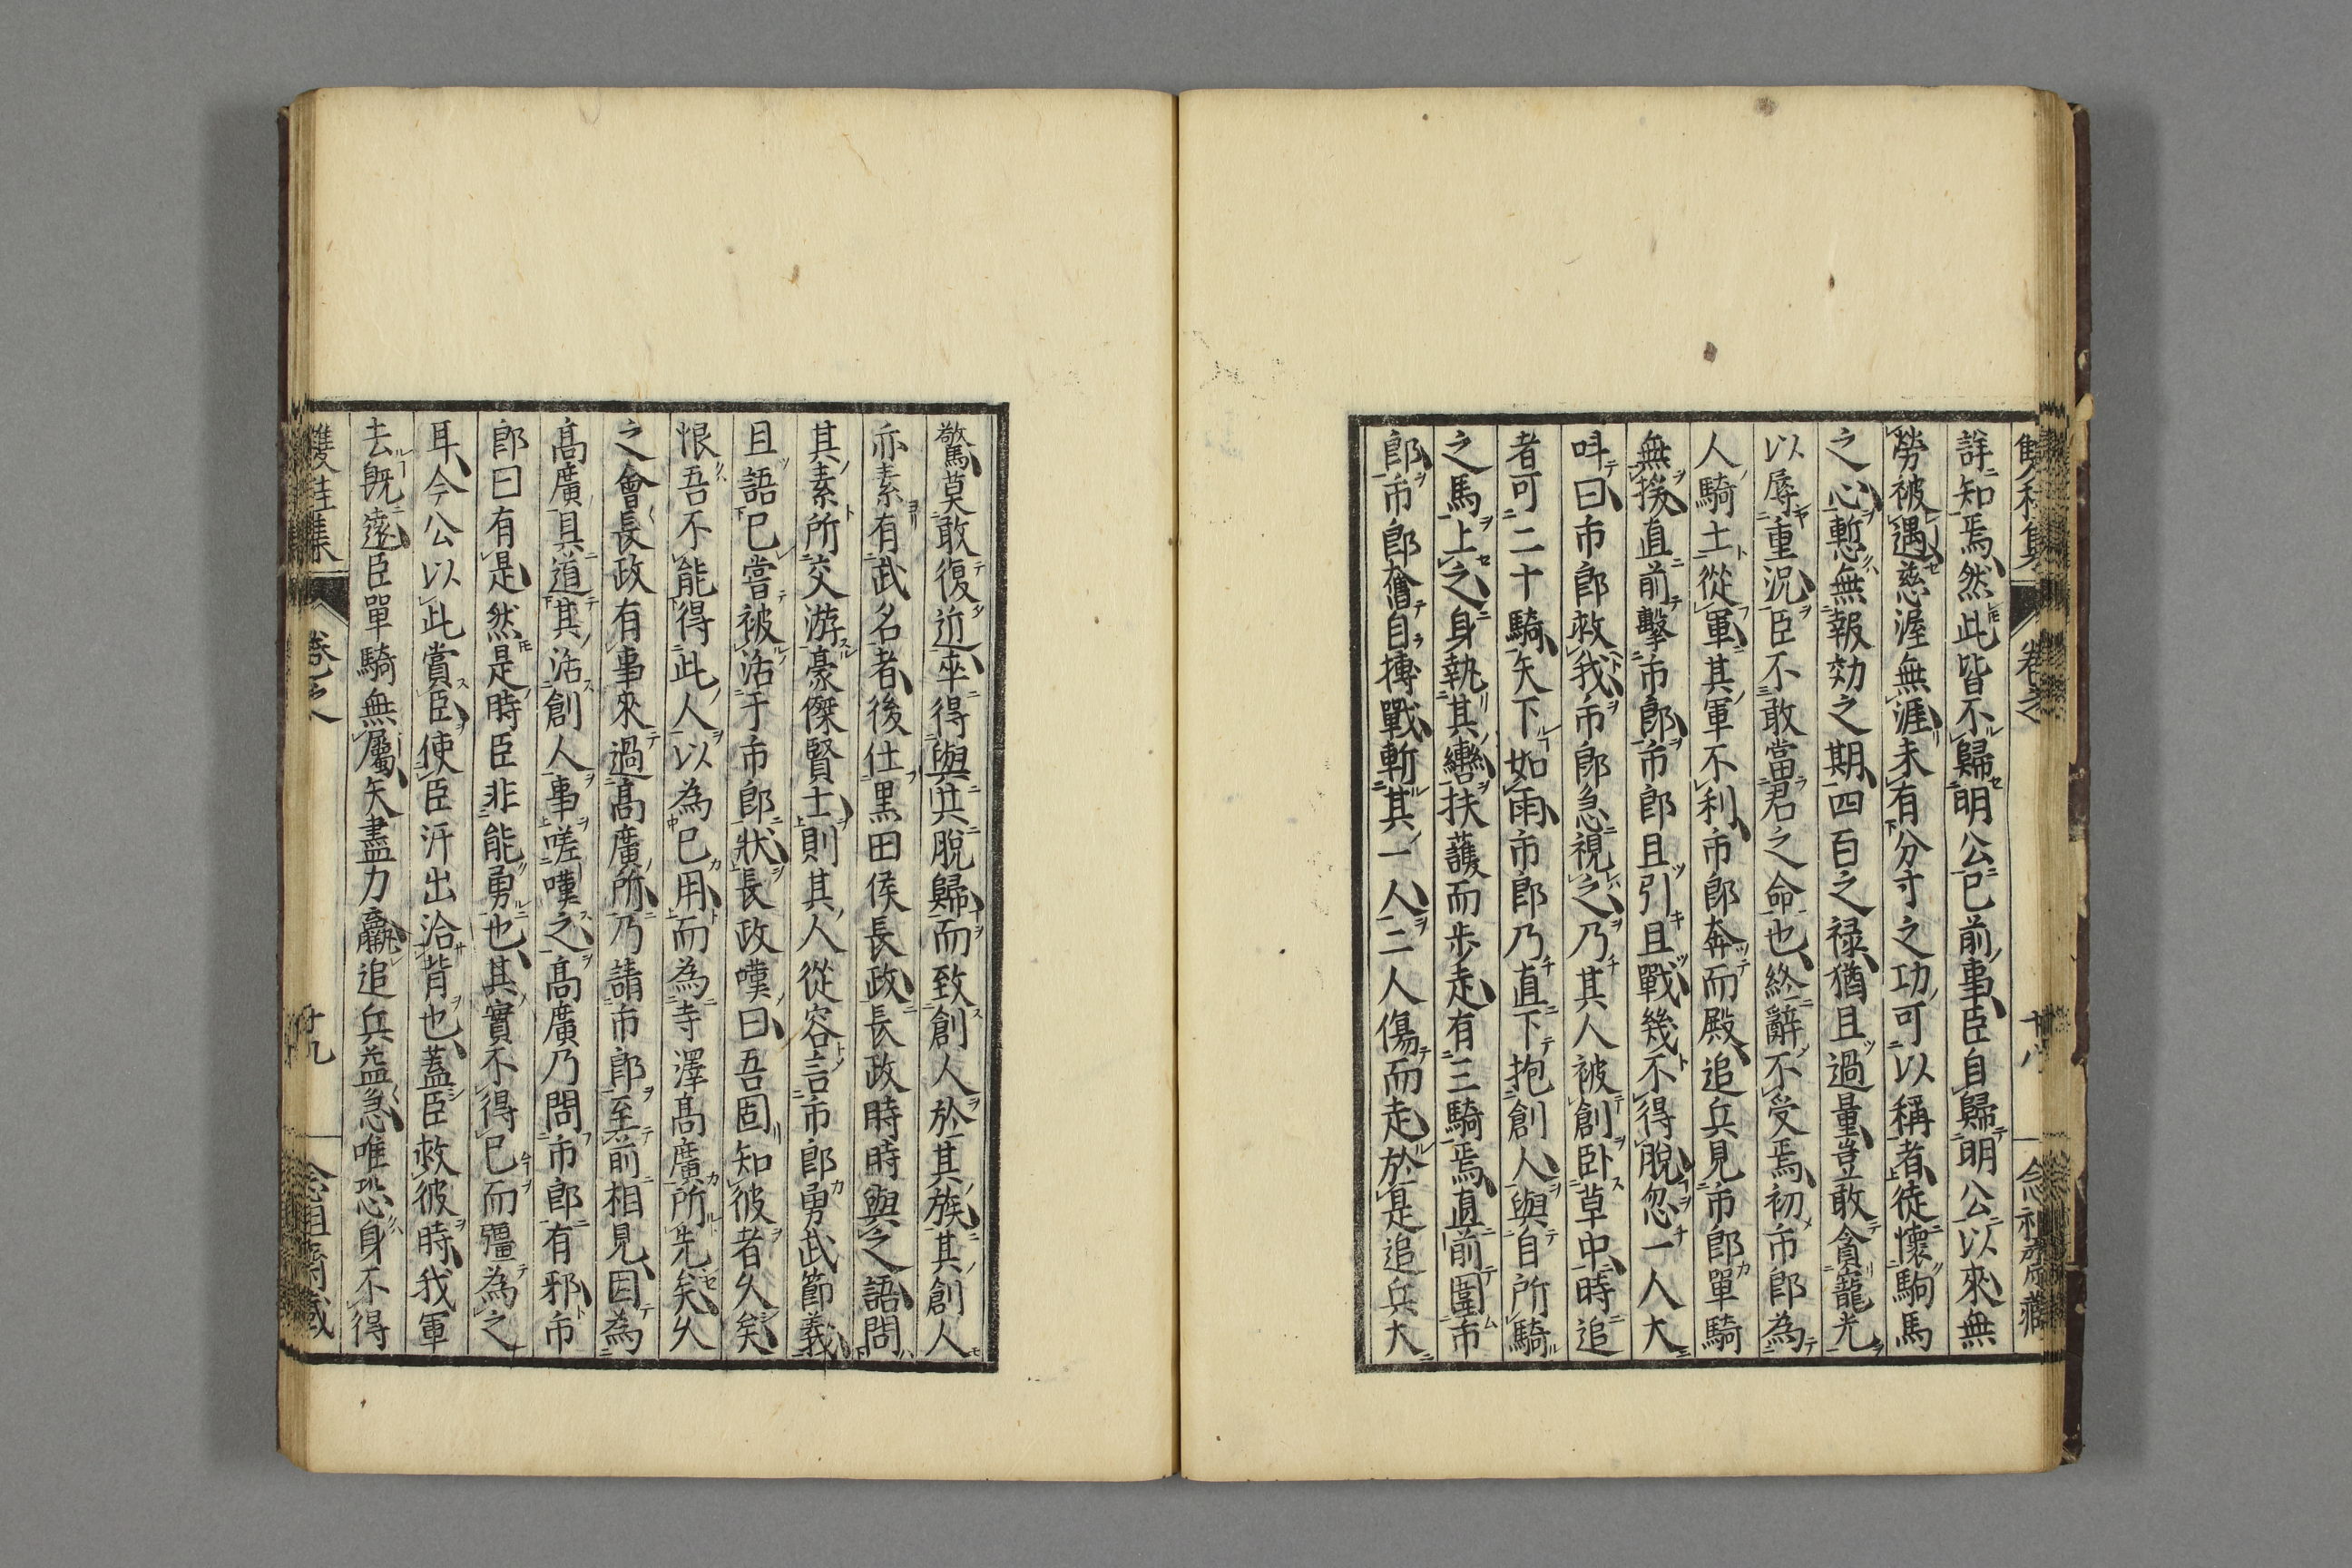 詳知焉然此皆不歸明公已前事臣自歸明公以來無
勞被遇慈渥無涯未有分寸之功可以稱者徒懷駒馬
之心慙無報効之期四百之禄猶且過量豈敢貪寵光
以辱重况臣不敢當君之命也終辭不受焉初市郎為
人騎士從軍其軍不利市郎奔而殿追兵見市郎單騎
無援直前擊市郎市郎且引且戰幾不得脫忽一人大
呌曰市郎救我市郎急視之乃其人被創卧草中時追
者可二十騎矢下如雨市郎乃直下抱創人與自所騎
之馬上之身執其轡扶護而步走有三騎焉直前圍市
郎市郎奮自搏戰斬其一人二人傷而走於是追兵大
驚莫敢復近卒得與共脫歸而致創人於其族其創人
亦素有武名者後仕黒田侯長政長政時時與之語問
其素所交游豪傑賢士則其人從容言市郎勇武節義
且語已嘗被活于市郎狀長政嘆曰吾固知彼者久矣
恨吾不能得此人以為已用而為寺澤髙廣所先矣久
之會長政有事來過髙廣所乃請市郎至前相見因為
髙廣具道其活創人事嗟嘆之髙廣乃問市郎有邪市
郎曰有是然是時臣非能勇也其實不得已而彊為之
耳今公以此賞臣使臣汗出洽背也蓋臣救彼時我軍
去既遠臣單騎無屬矢盡力羸追兵益急唯恐身不得
卷之八
十九